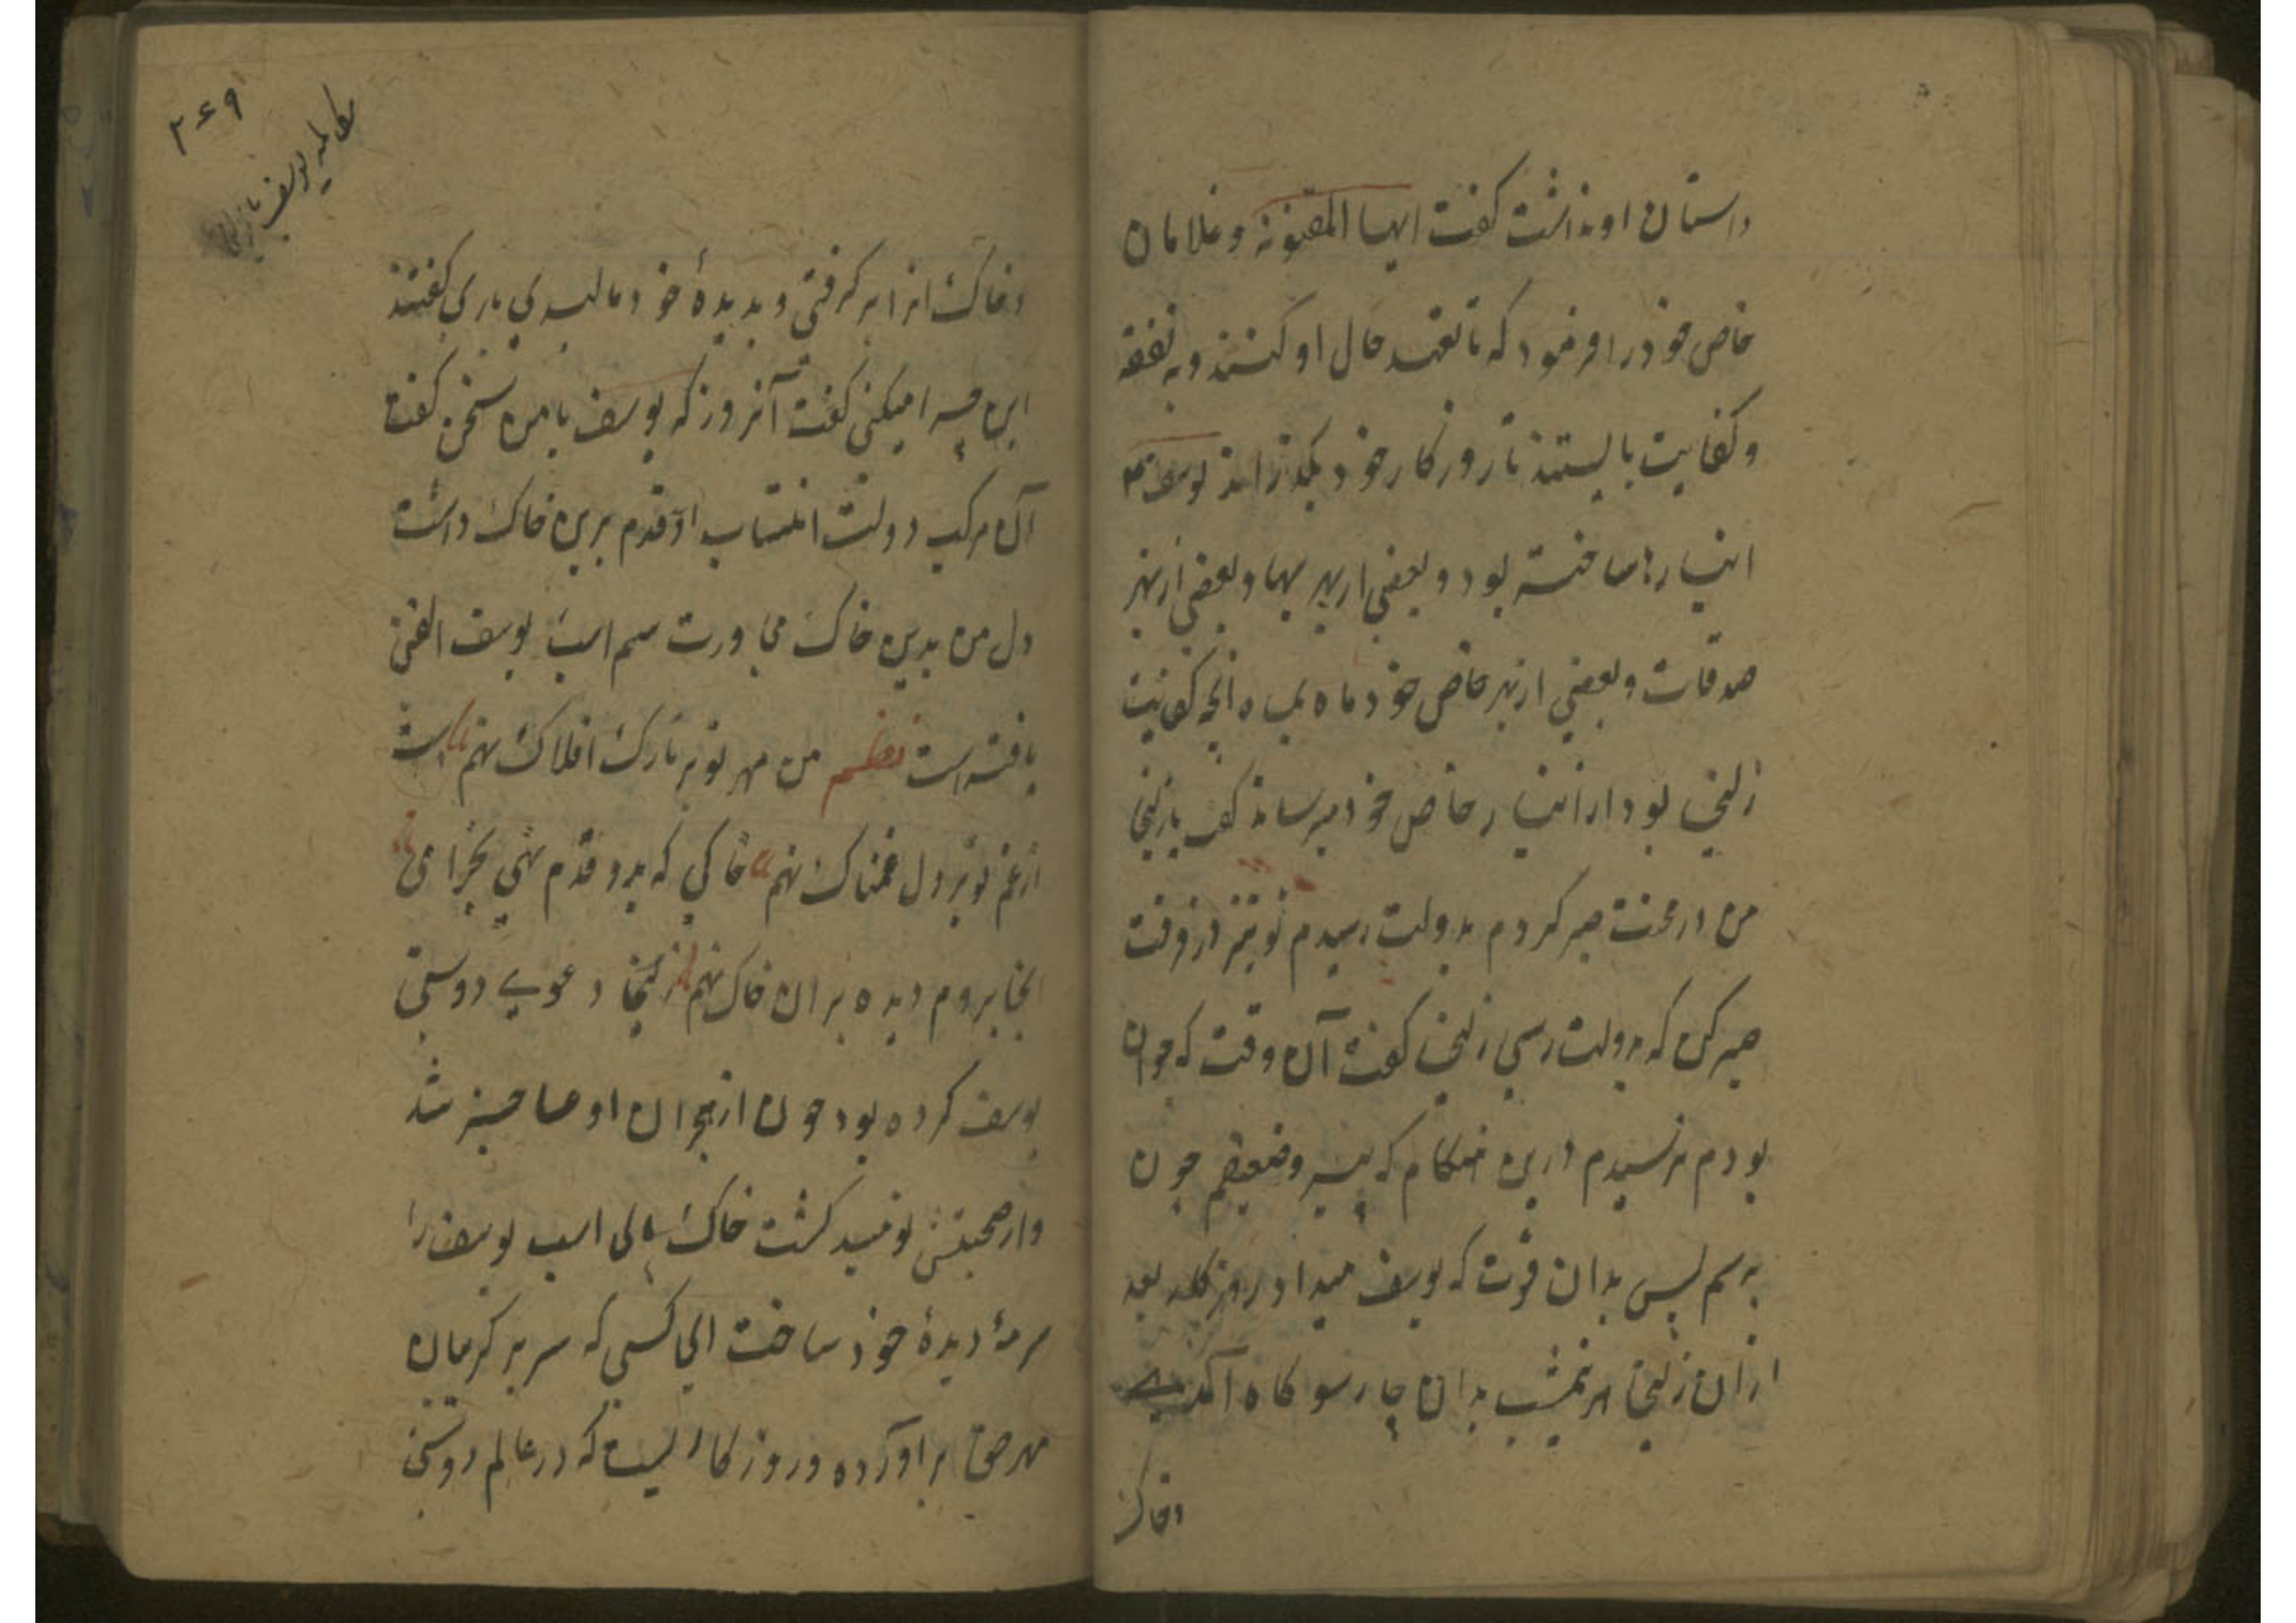 داستان او نداشت گفت ایها المفتونه و غلامان
خاص خود را فرمود که تا تعهد حال او کنند و به نفقه
و کفایت بایستند تا روزگار خود بگذراند یوسف
انبارها ساخته بود و بعضی از بهر بها و بعضی از بهر
صدقات و بعضی از بهر خاص خود ماه بماه انچه کفایت
زلیخا بود از انبار خاص خود میرساند گفت یا زلیخا
من در محنت صبر کردم بدولت رسیدم تو نیز در فرقت
صبر کن که بدولت رسی زلیخا گفت آن وقت که جوان
بودم نرسیدم درین هنگام که پیر و ضعیفم چون
برسم پس بدان قوت که یوسف میداد روزگار بعد
از ان زلیخا هر نیمشب بدان چارسو کاه آمدی
وخاک
مکالمه یوسف با زلیخا
وخاک انرا برکرفتی و بدیدهٔ خود مالیدی باری کفتند
این چرا میکنی کفت آنروز که یوسف با من سخن کفت
آن مرکب دولت انتساب او قدم برین خاک داشت
دل من بدین خاک مجاورت سم اسپ یوسف الفت
یافته است نظم من مهر تو بر تارک افلاک نهم است
از غم تو بر دل غمناک نهم خاکی که برو قدم نهی بخرامی
انجا بروم دیده بران خاک نهم زلیخا دعوی دوستی
یوسف کرده بود چون از هجران او صاحب شد
واز صحبتش نومید کشت خاک پای اسپ یوسف را
سرمهٔ دیدهٔ خود ساخت ای کسی که سر بر کریبان
مهر حق براورده و روزکاریست که در عالم دوستی